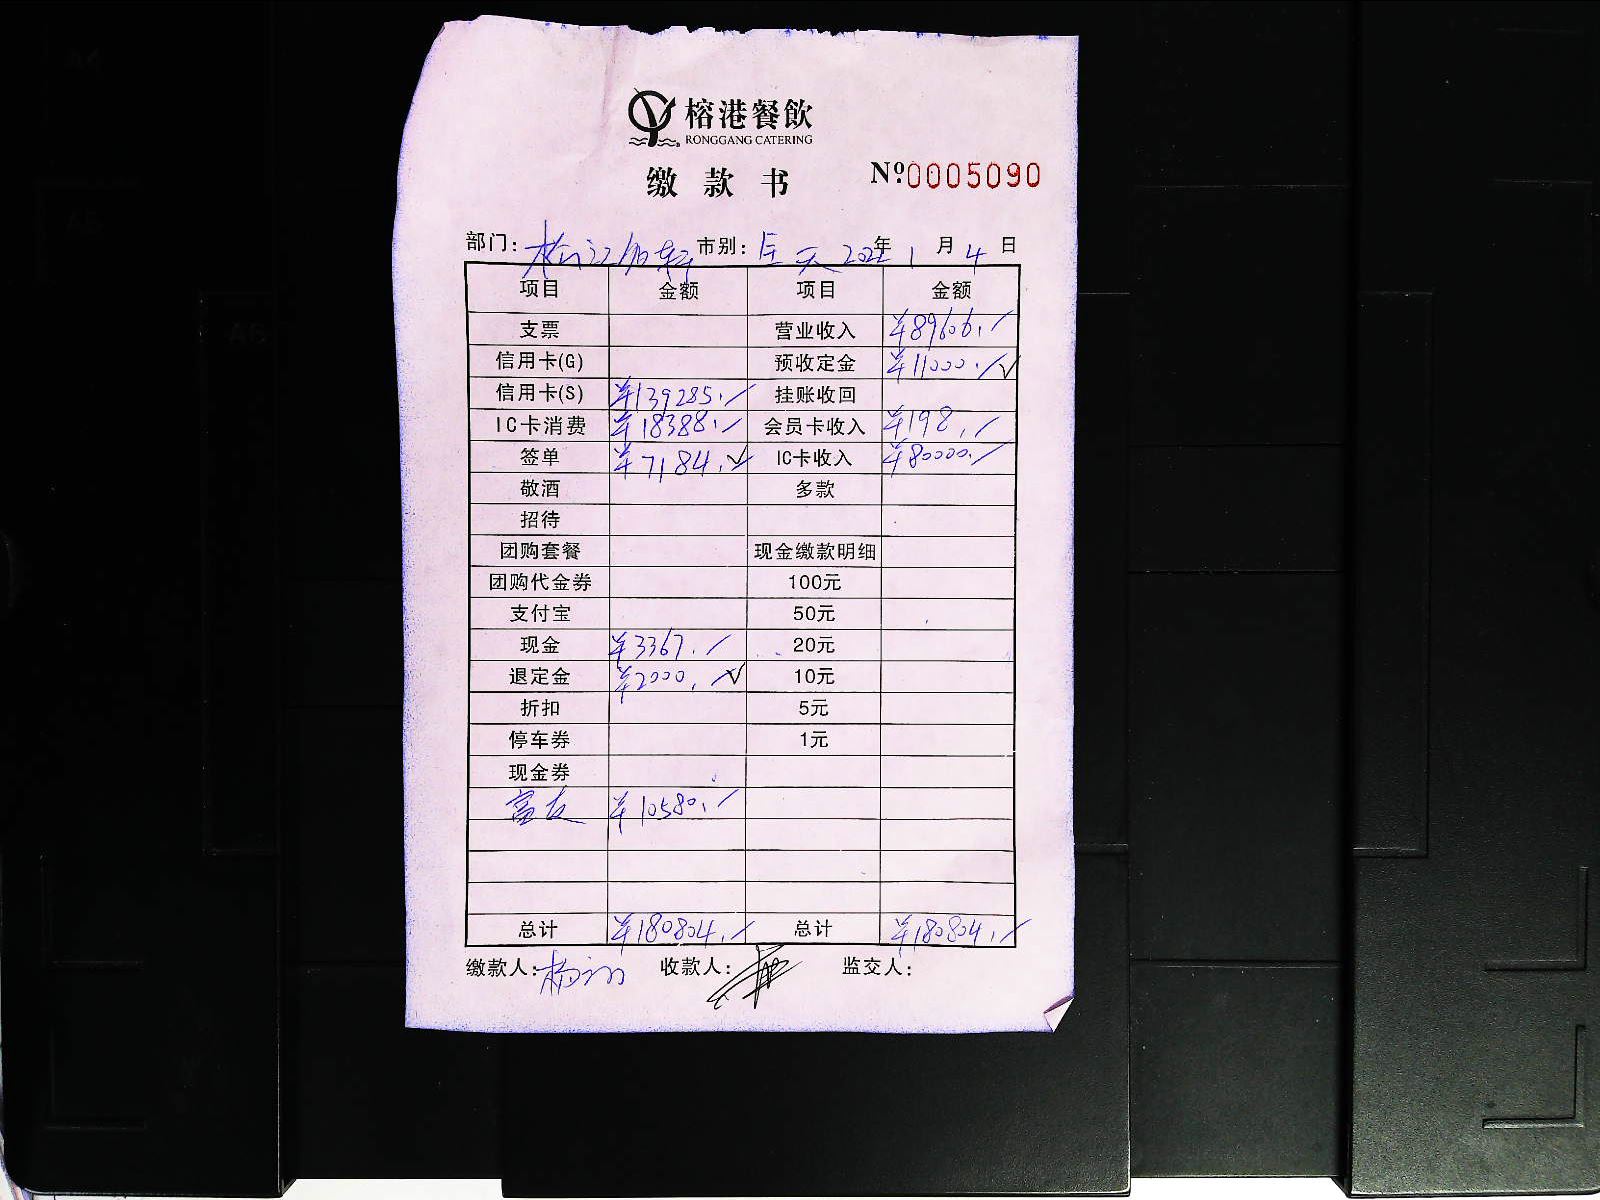 榕港餐飲
RONGGANG CATERING
缴款书 №0005090
部门: 市别: 全天 2022年 1月 4日
项目 金额 项目 金额
支票 营业收入 ¥89606.
信用卡(G) 预收定金 ¥11000.
信用卡(S) ¥139285. 挂账收回
IC卡消费 ¥18388. 会员卡收入 ¥198.
签单 ¥7184. IC卡收入 ¥80000.
敬酒 多款
招待
团购套餐 现金缴款明细
团购代金券 100元
支付宝 50元
现金 ¥3367. 20元
退定金 ¥2000. 10元
折扣 5元
停车券 1元
现金券
富友 ¥10580.
总计 ¥180804. 总计 ¥180804.
缴款人: 收款人: 监交人: